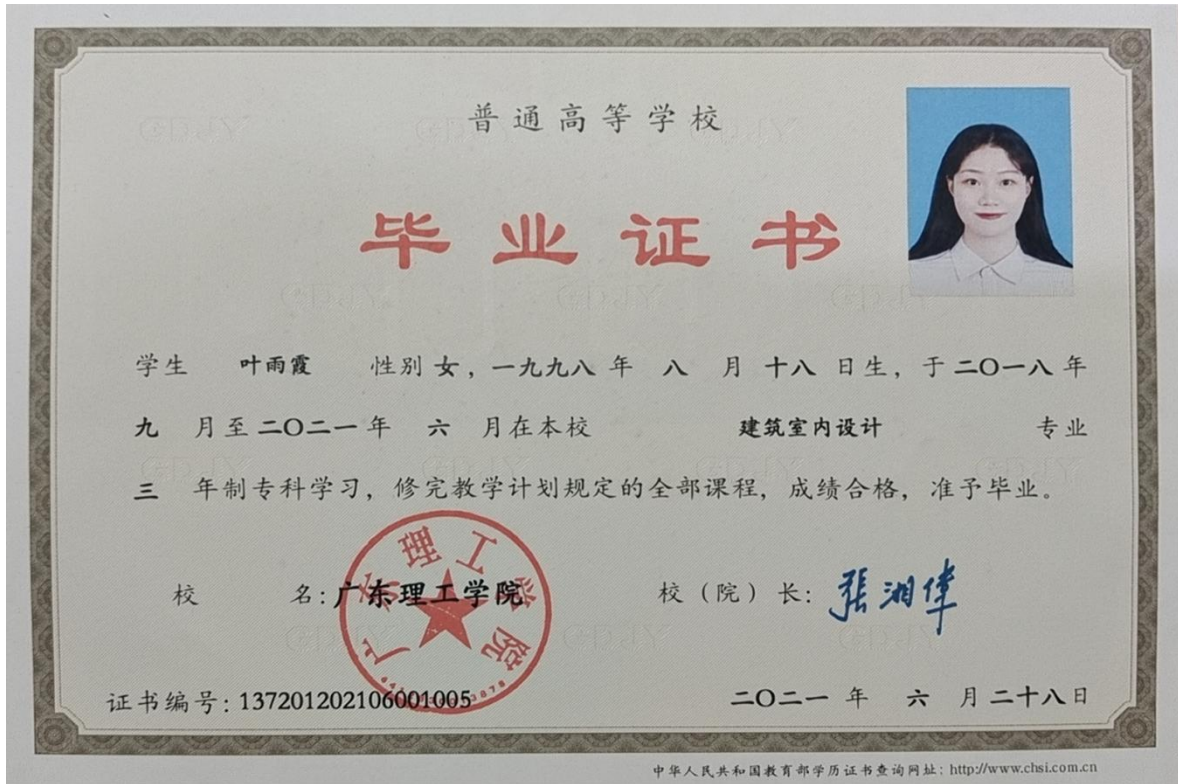 普通高等学校
毕业证书
学生 叶雨霞 性别 女，一九九八 年 八 月 十八 日生，于 二〇一八 年
九 月至 二〇二一 年 六 月在本校 建筑室内设计 专业
三 年制专科学习，修完教学计划规定的全部课程，成绩合格，准予毕业。
校 名：广东理工学院 校（院）长：张湘伟
广东理工学院
证书编号：137201202106001005 二〇二一 年 六 月 二十八 日
中华人民共和国教育部学历证书查询网址：http://www.chsi.com.cn
GDJY